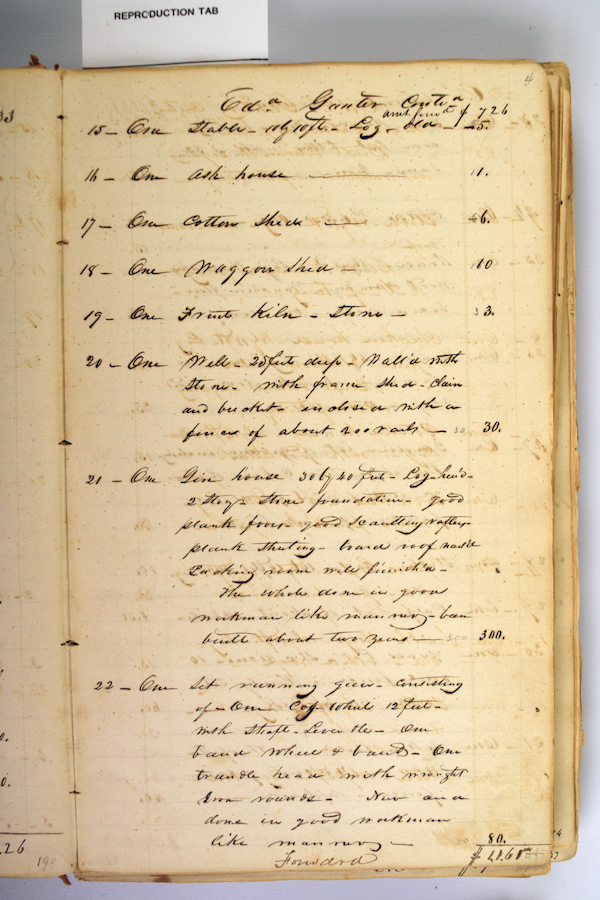 REPRODUCTION TAB
4
33
Ed.a Gunter Contd
amt ford $ 726
15 - One Stable - by 10 ft - Log - old - 5.
16 - One Ash house 1.
17 - One Cotton Shed - 6.
18 - One Waggon Shed - 10
19 - One Fruit Kiln - Stone - 3.
20 - One Well - 25 feet deep - Wall'd with
Stone - with frame shed - Chain
and bucket - enclosed with a
fence of about 200 rails - 30.
21 - One Gin house 30 by 40 feet - Log - hew'd -
2 Story - Stone foundation - good
plank floors - good Scantling rafters -
plank Sheeting - board roof nail'd
Packing room well finish'd -
The whole done in good
workman like manner - been
built about two years - 300.
22 - One Set running gear - Consisting
of - One Cog Wheel 12 feet -
with Shaft - Lever &c - One
band wheel & band - One
trundle head with wrought
Iron rounds - New and
done in good workman
like manner - 80.
Forward
.26